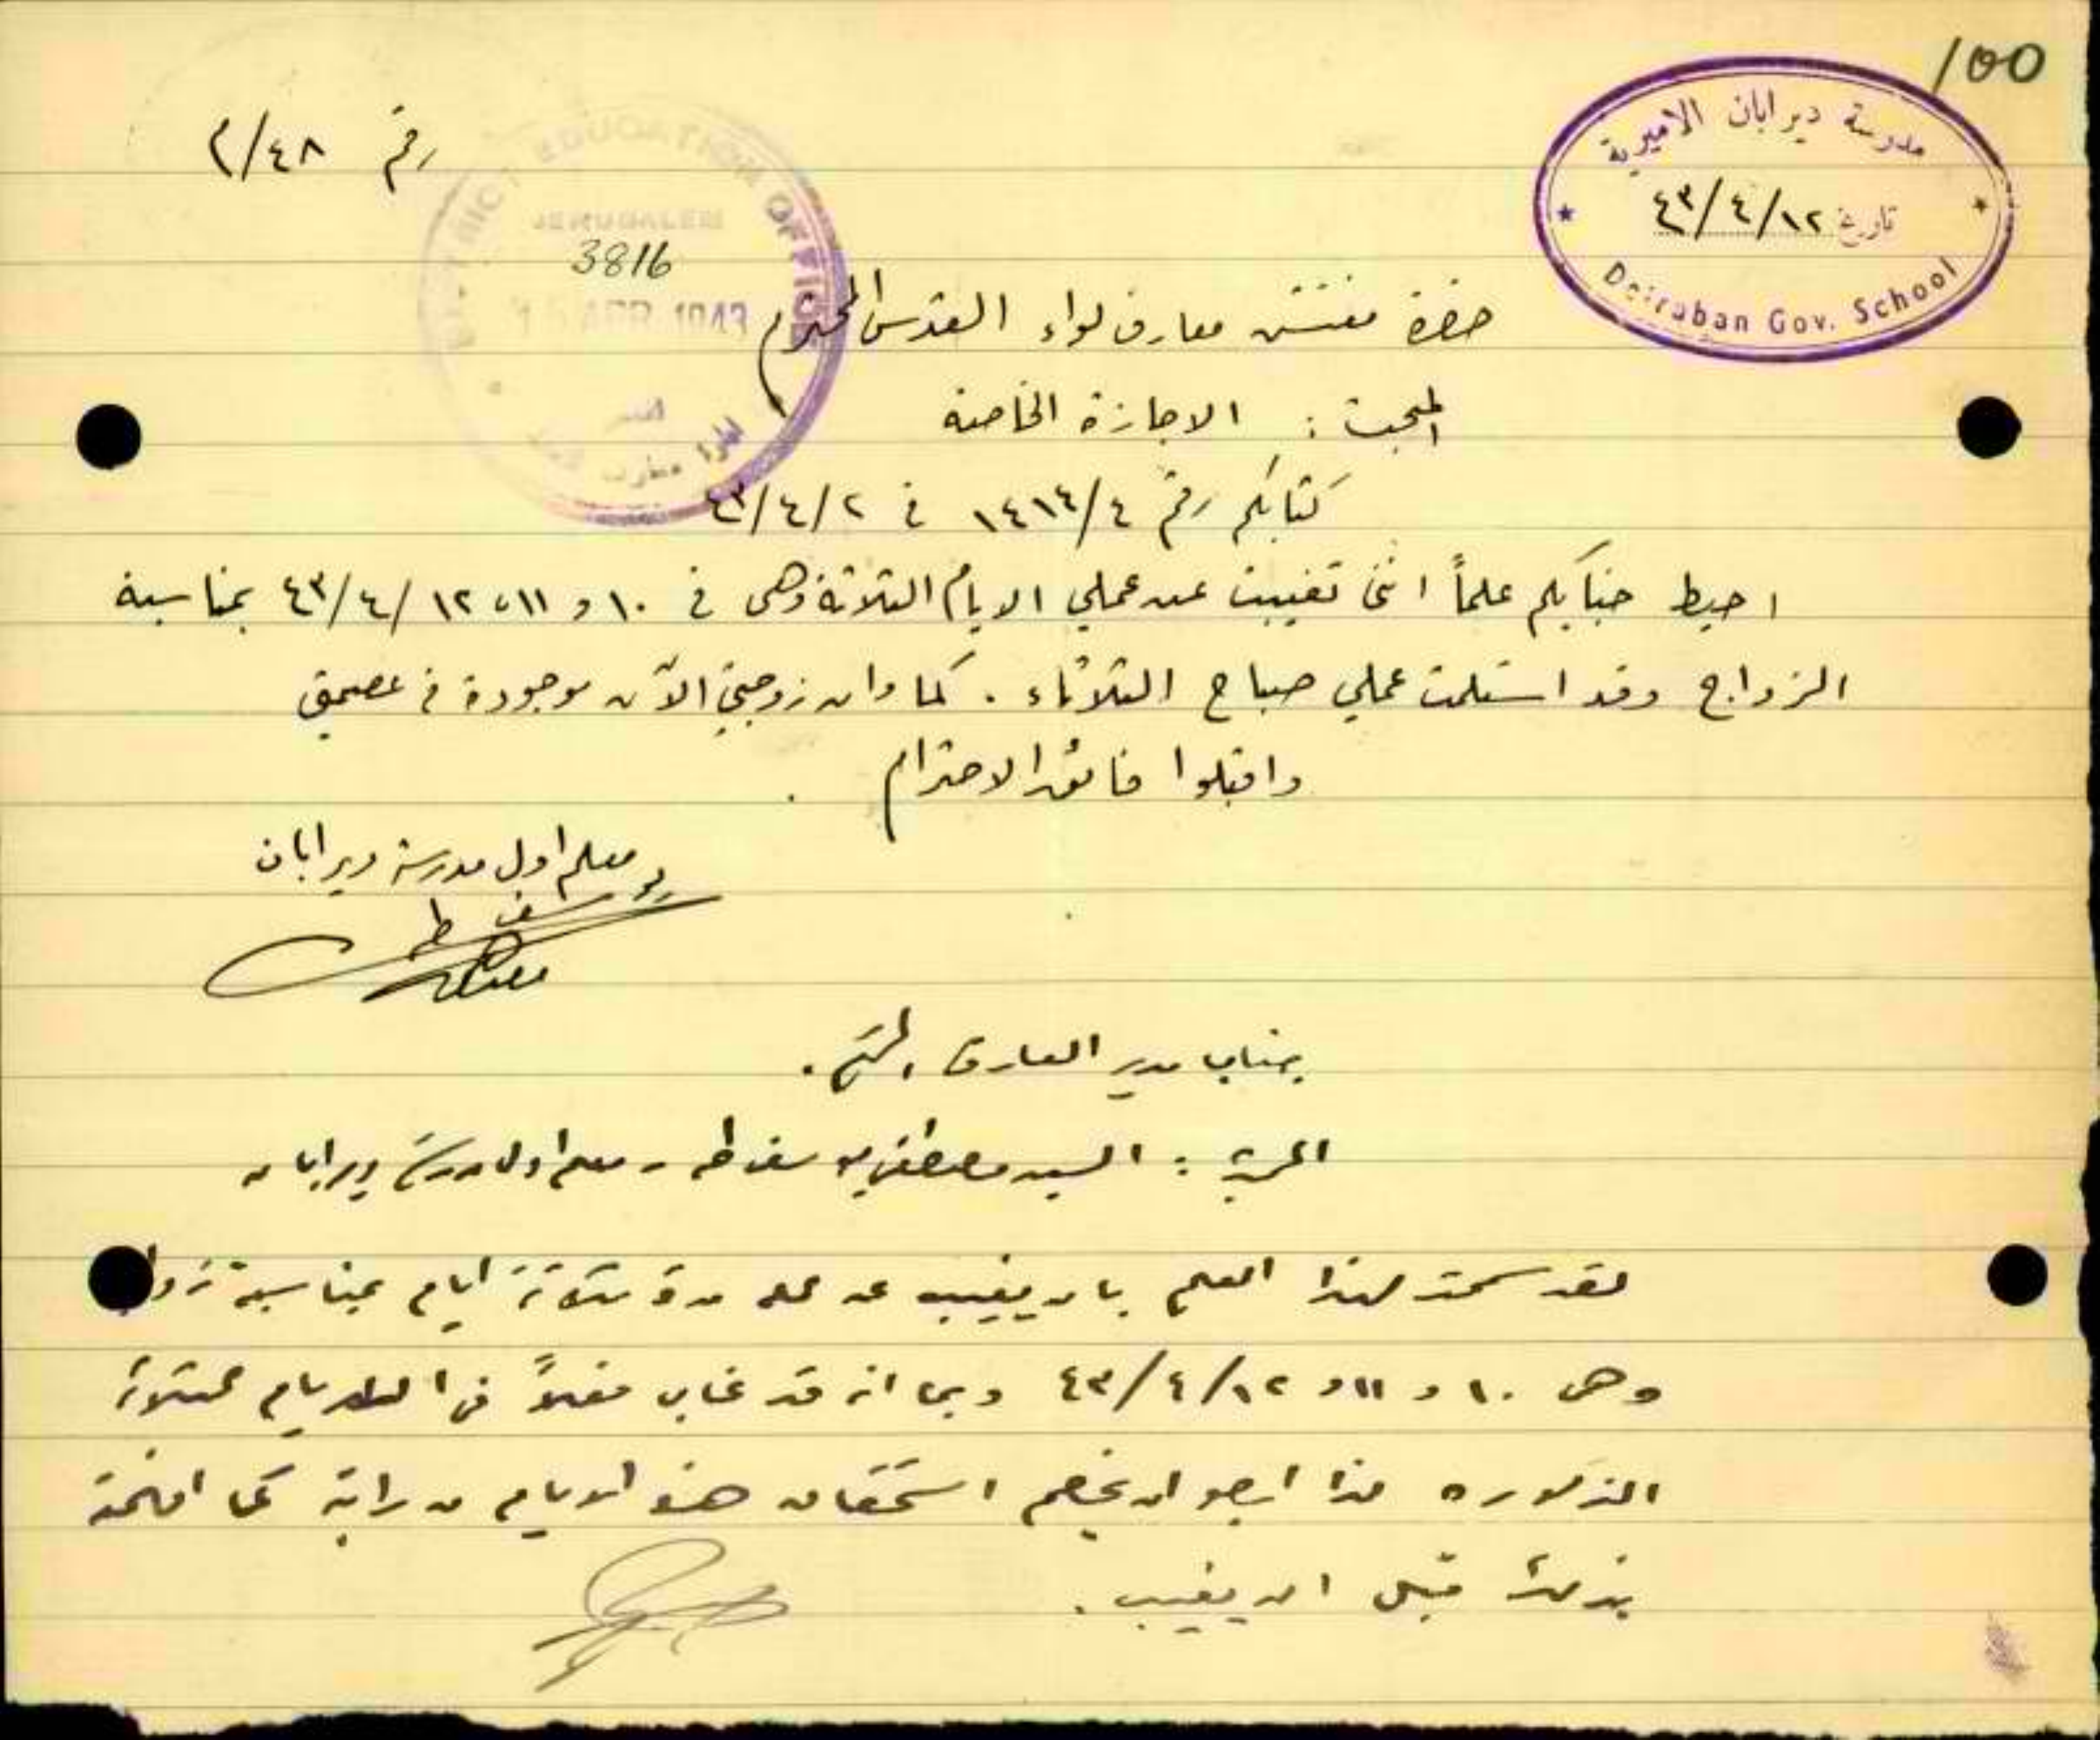 100
مدرسة ديرابان الاميرية
تاريخ ٤٣/٤/١٢
Deiraban Gov. School
رقم ٢/٤٨
DISTRICT EDUCATION OFFICE
JERUSALEM
3816
15 APR 1943
حضرة مفتش معارف لواء القدس المحترم
المبحث : الاجازة الخاصة
كتابكم رقم ١٤١٤/٤ في ٤٣/٤/٢
احيط جنابكم علماً انني تغيبت عن عملي الايام الثلاثة وهي في ١٠ و ١١ و ١٢ /٤/ ٤٣ بمناسبة
الزواج وقد استلمت عملي صباح الثلاثاء . كما وان زوجتي الآن موجودة في
واقبلوا فائق الاحترام .
معلم اول مدرسة ديرابان
يوسف طه
مصطفى
جناب مدير المعارف المحترم .
المبحث : السيد مصطفى يوسف طه - معلم اول مدرسة ديرابان
لقد سمحت لهذا المعلم بان يغيب عن عمله مدة ثلاثة ايام بمناسبة زواجه
وهي ١٠ و ١١ و ١٢/٤/٤٣ وبما انه قد غاب فعلاً في الايام الثلاثة
المذكوره لذا ارجو ان يخصم استحقاق هذه الايام من راتبه كما افهمته
بذلك قبل ان يغيب .